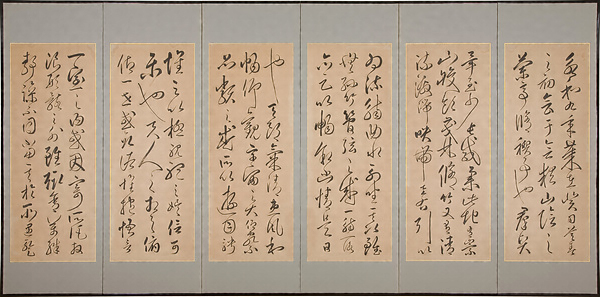 永和九年歲在癸丑暮春
之初會于會稽山陰之
蘭亭脩禊事也群賢
畢至少長咸集此地有崇
山峻領茂林脩竹又有清
流激湍映帶左右引以
為流觴曲水列坐其次雖
無絲竹管弦之盛一觴一詠
亦足以暢敘幽情是日
也天朗氣清惠風和
暢仰觀宇宙之大俯察
品類之盛所以遊目騁
懷足以極視聽之娛信可
樂也夫人之相與俯
仰一世或取諸懷抱悟言
一室之內或因寄所託放
浪形骸之外雖趣舍萬殊
靜躁不同當其欣於所遇暫